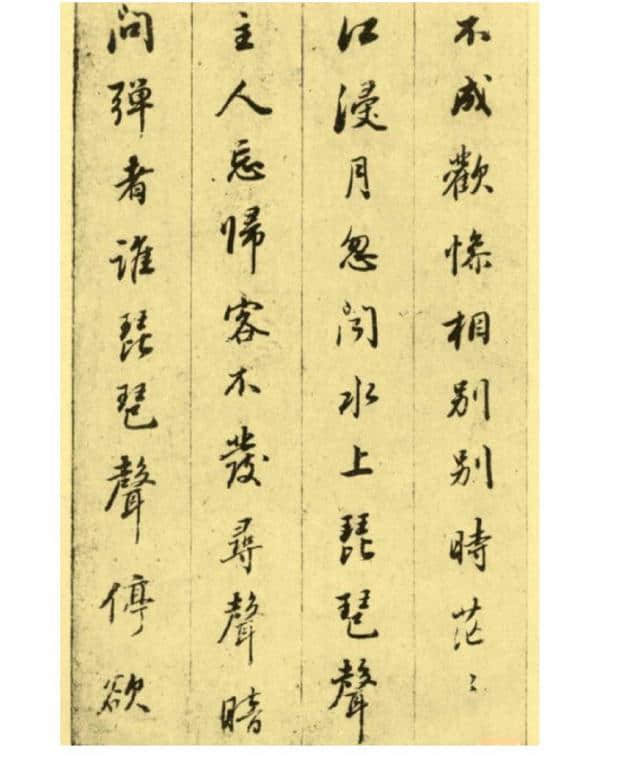 不成歡慘相別別時茫〻
江浸月忽聞水上琵琶聲
主人忘歸客不發尋聲暗
問弹者誰琵琶聲停欲